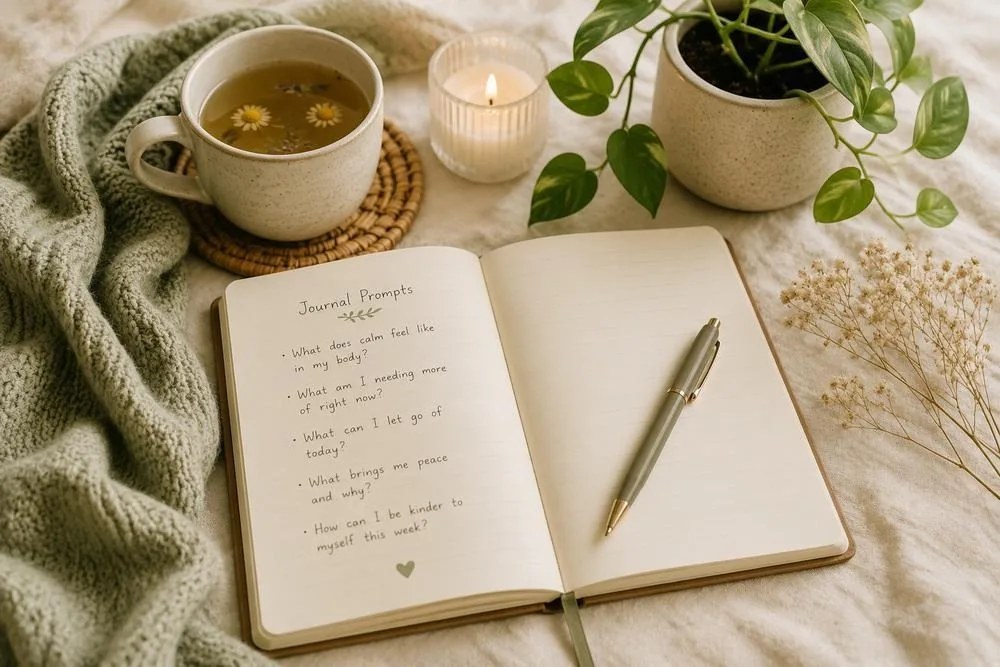 Journal Prompts
• What does calm feel like
in my body?
• What am I needing more
of right now?
• What can I let go of
today?
• What brings me peace
and why?
• How can I be kinder to
myself this week?